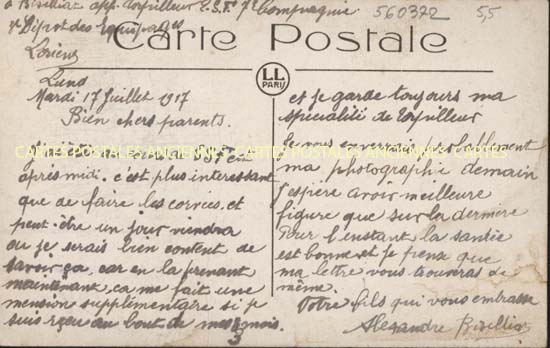 à Bisilliat app. torpilleur T.S.F. 7e Compagnie
Dépôt des Equipages
Lorient
560372
5,5
Carte Postale
LL
PARIS
Mardi 17 Juillet 1917
Bien chers parents.
CARTES POSTALES ANCIENNES CARTES POSTALES ANCIENNES CARTES
après midi. c'est plus interessant
que de faire les corvées. et
peut-être un jour viendra
ou je serais bien content de
savoir ça, car en la prenant
maintenant, ca me fait une
mension supplémentaire si je
suis reçu au bout de mes 3 mois.
et je garde toujours ma
spécialité de torpilleur
Je vous enverrais probablement
ma photographie demain
J'espère avoir meilleure
figure que sur la dernière
Pour l'instant la santée
est bonne et je pense que
ma lettre vous trouvera de
même.
Votre fils qui vous embrasse
Alexandre Bisilliat